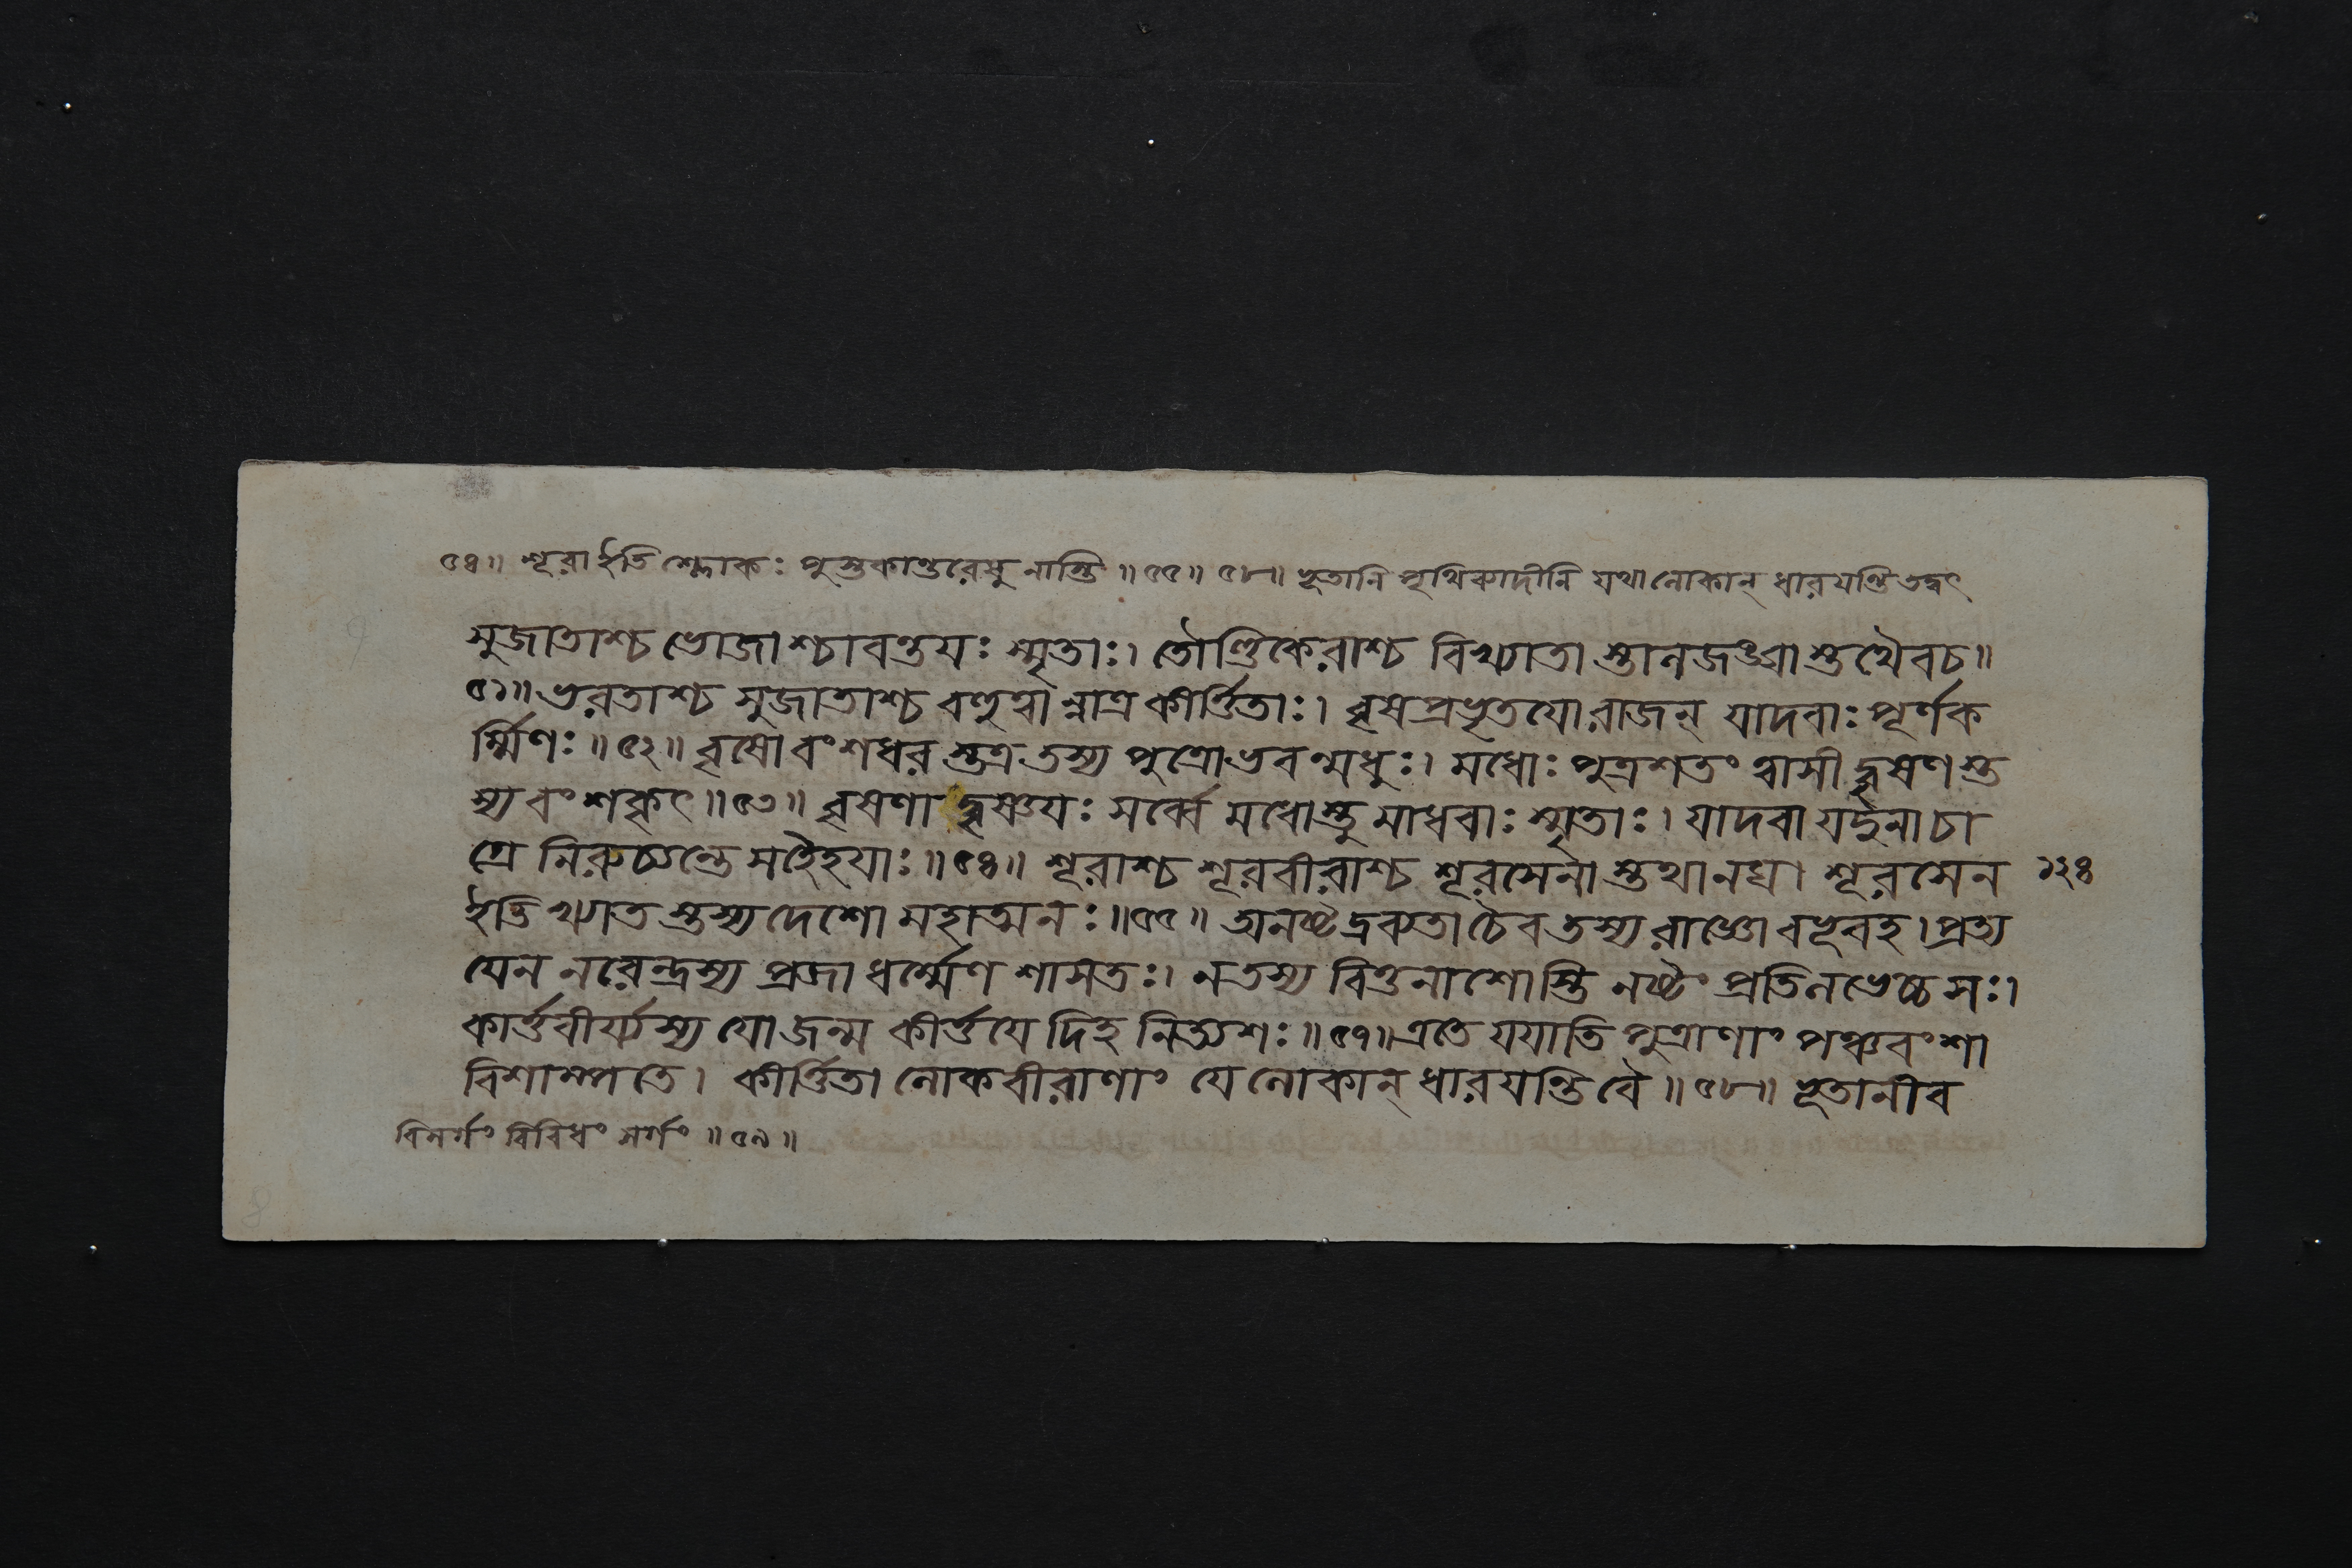 ৫৪॥ শূরা ইতি শ্লোকঃ পুস্তকান্তরেষু নাস্তি ॥৫৫॥ ৫৮॥ ভূতানি পৃথিব্যাদীনি যথা লোকান্ ধারয়ন্তি তদ্বৎ
সুজাতাশ্চ ভোজাশ্চাবন্তয়ঃ স্মৃতাঃ। তৌণ্ডিকেরাশ্চ বিখ্যাতা স্তালজঙ্ঘা স্তথৈবচ॥
৫১॥ ভরতাশ্চ সুজাতাশ্চ বহুত্বান্নাত্র কীর্ত্তিতাঃ। বৃষপ্রভৃতয়োরাজন্ যাদবাঃ পূর্ণক
র্ম্মিণঃ॥৫২॥ বৃষোবংশধর স্তত্র তস্য পুত্রোভবন্মধুঃ। মধোঃ পুত্রশতং ত্বাসীদ্বৃষণ স্ত
স্য বংশকৃৎ॥৫৩॥ বৃষণাদ্বৃষ্ণয়ঃ সর্ব্বে মধোস্তু মাধবাঃ স্মৃতাঃ। যাদবা যদুনাচা
গ্রে নিরুচ্যন্তে সহৈহয়াঃ॥৫৪॥ শূরাশ্চ শূরবীরাশ্চ শূরসেনা স্তথানঘ। শূরসেন
১২৪
ইতি খ্যাত স্তস্য দেশো মহাত্মনঃ॥৫৫॥ অনষ্টদ্রব্যতা চৈব তস্য রাজ্ঞো বভূবহ। প্রত্য
যেন নরেন্দ্রস্য প্রজা ধর্ম্মেণ শাসতঃ। ন তস্য বিত্তনাশোস্তি নষ্টং প্রতিলভেচ্চ সঃ।
কার্ত্তবীর্য্যস্য যো জন্ম কীর্ত্তয়ে দিহ নিত্যশঃ॥৫৭॥ এতে যযাতি পুত্রাণাং পঞ্চবংশা
বিশাম্পতে। কীর্ত্তিতা লোকবীরাণাং যে লোকান্ ধারয়ন্তি বৈ॥৫৮॥ ভূতানীব
বিসর্গং বিবিধং সর্গং॥৫৯॥